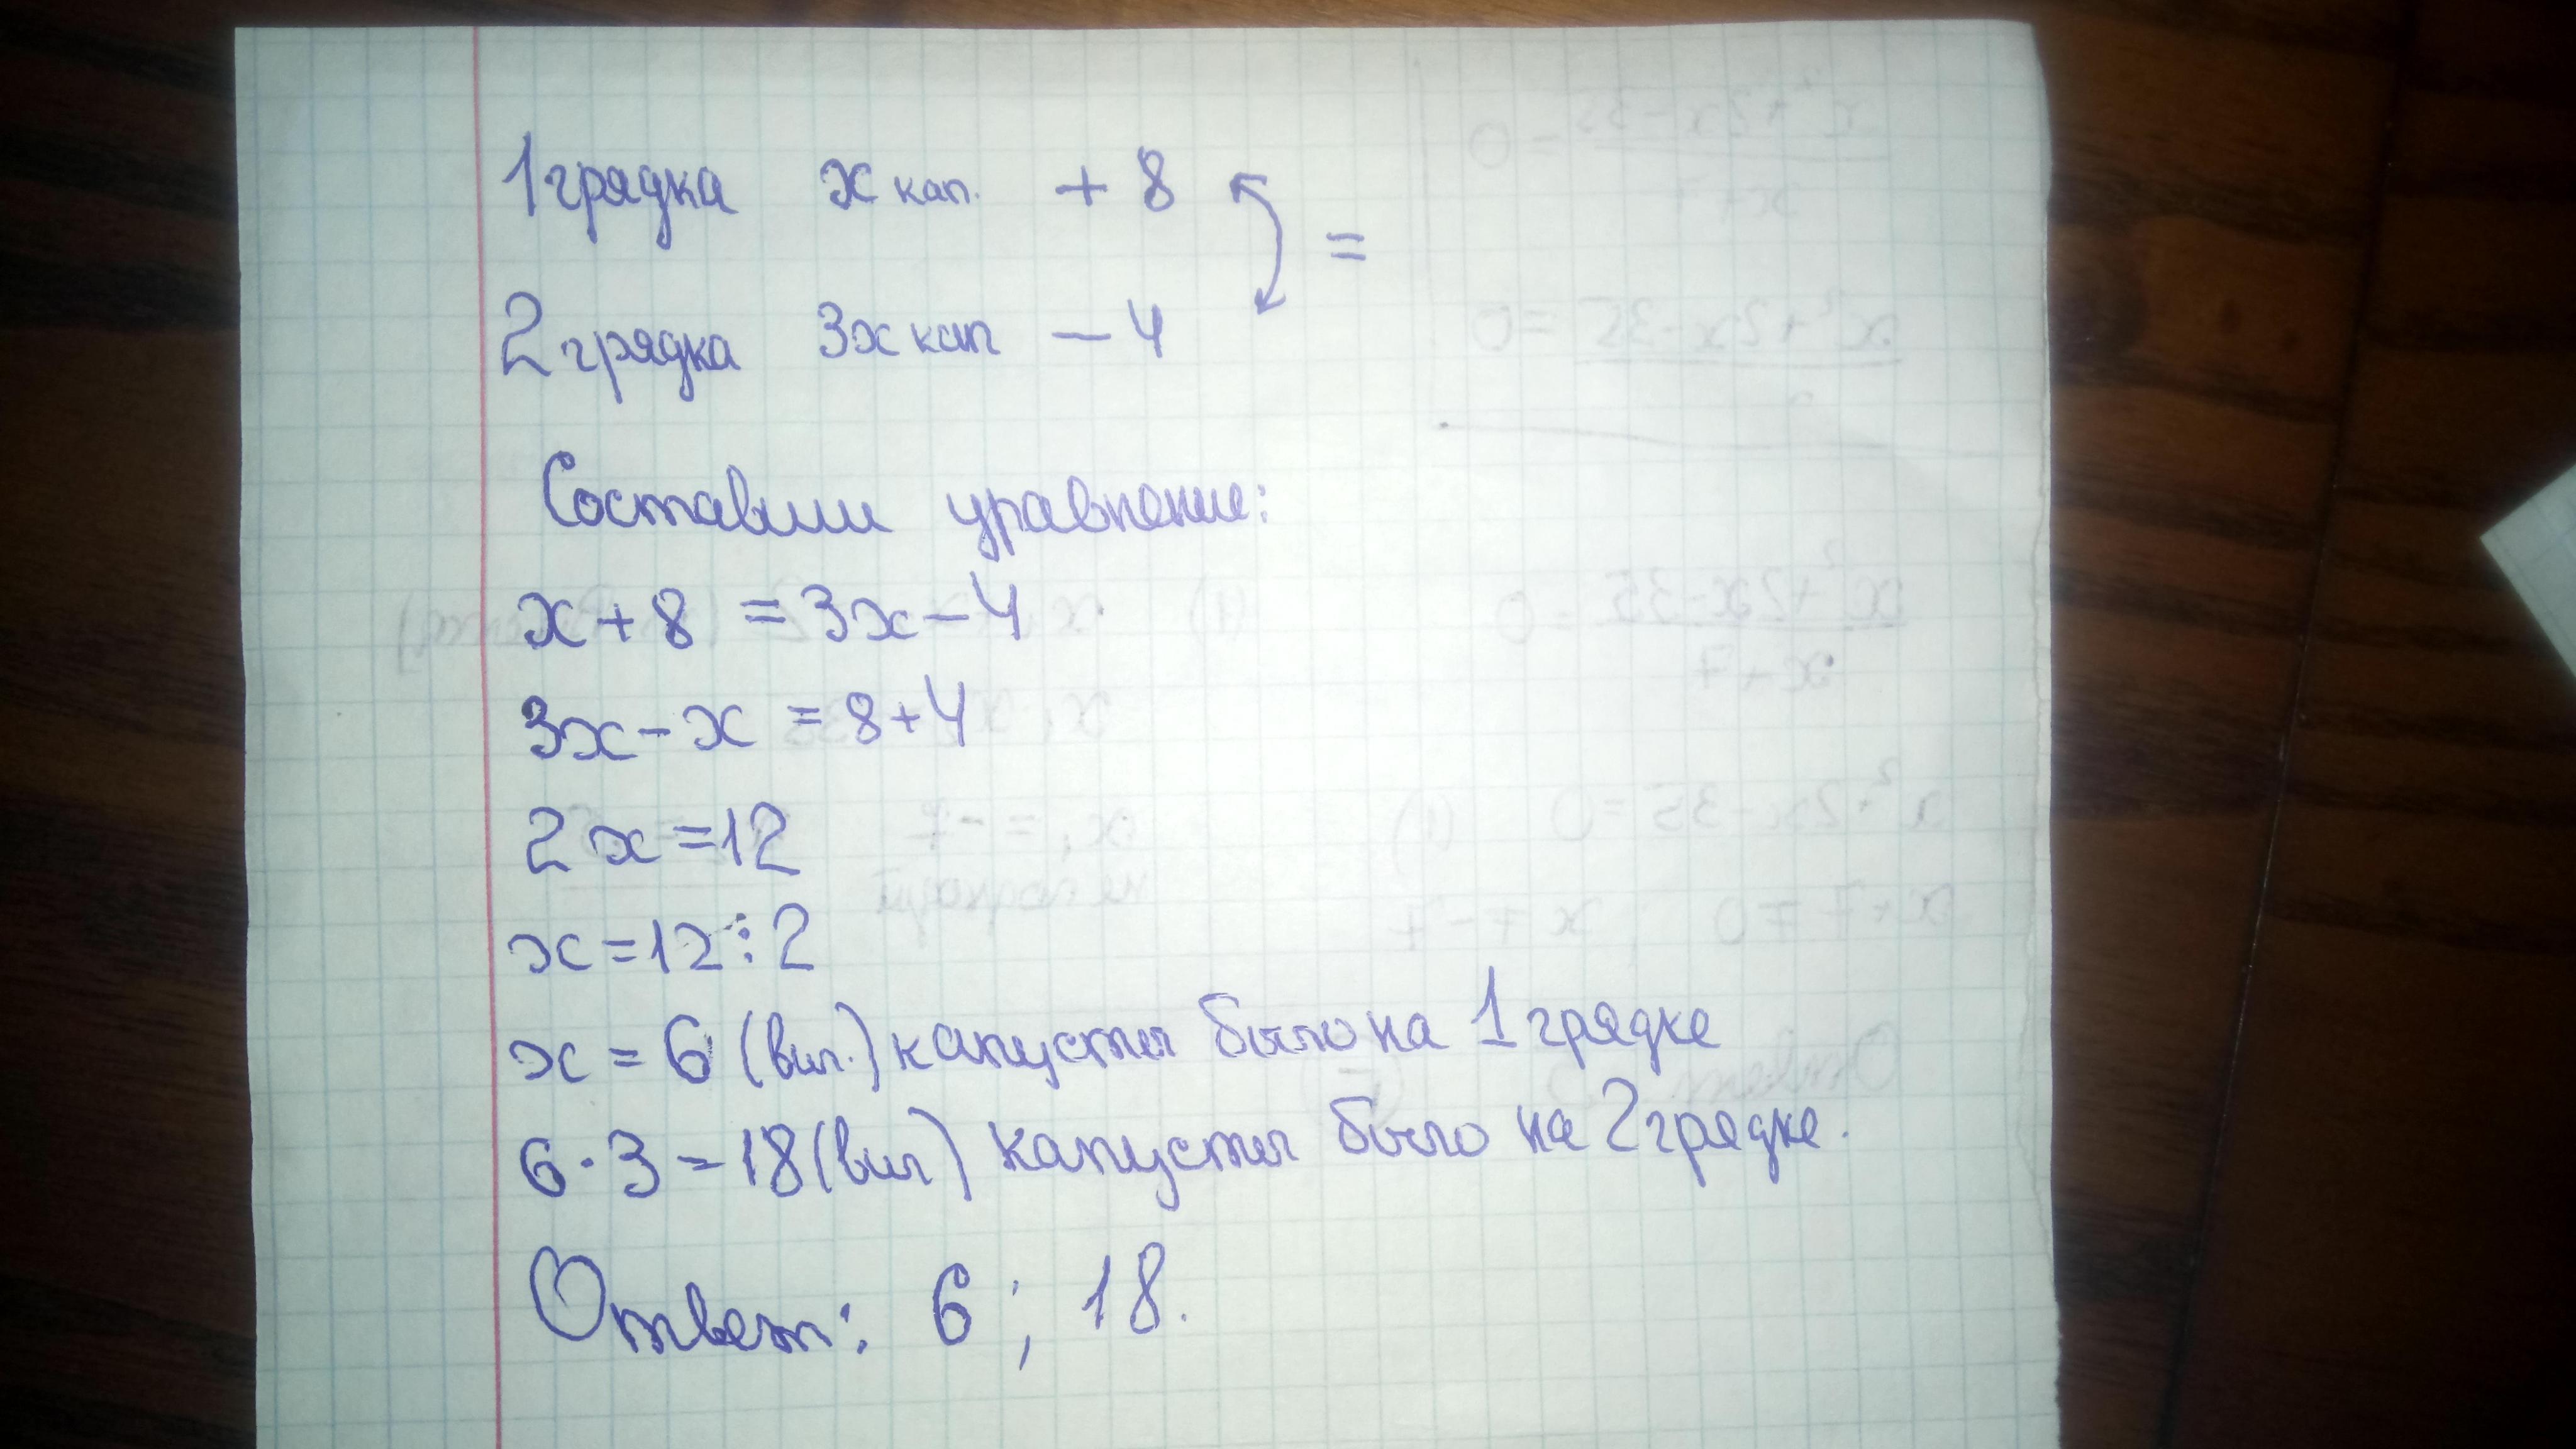 1 грядка х кап. + 8
=
2 грядка 3х кап - 4
Составим уравнение:
х + 8 = 3х - 4
3х - х = 8 + 4
2х = 12
х = 12 : 2
х = 6 (вил.) капусты было на 1 грядке
6 · 3 = 18 (вил) капусты было на 2 грядке.
Ответ: 6 ; 18.